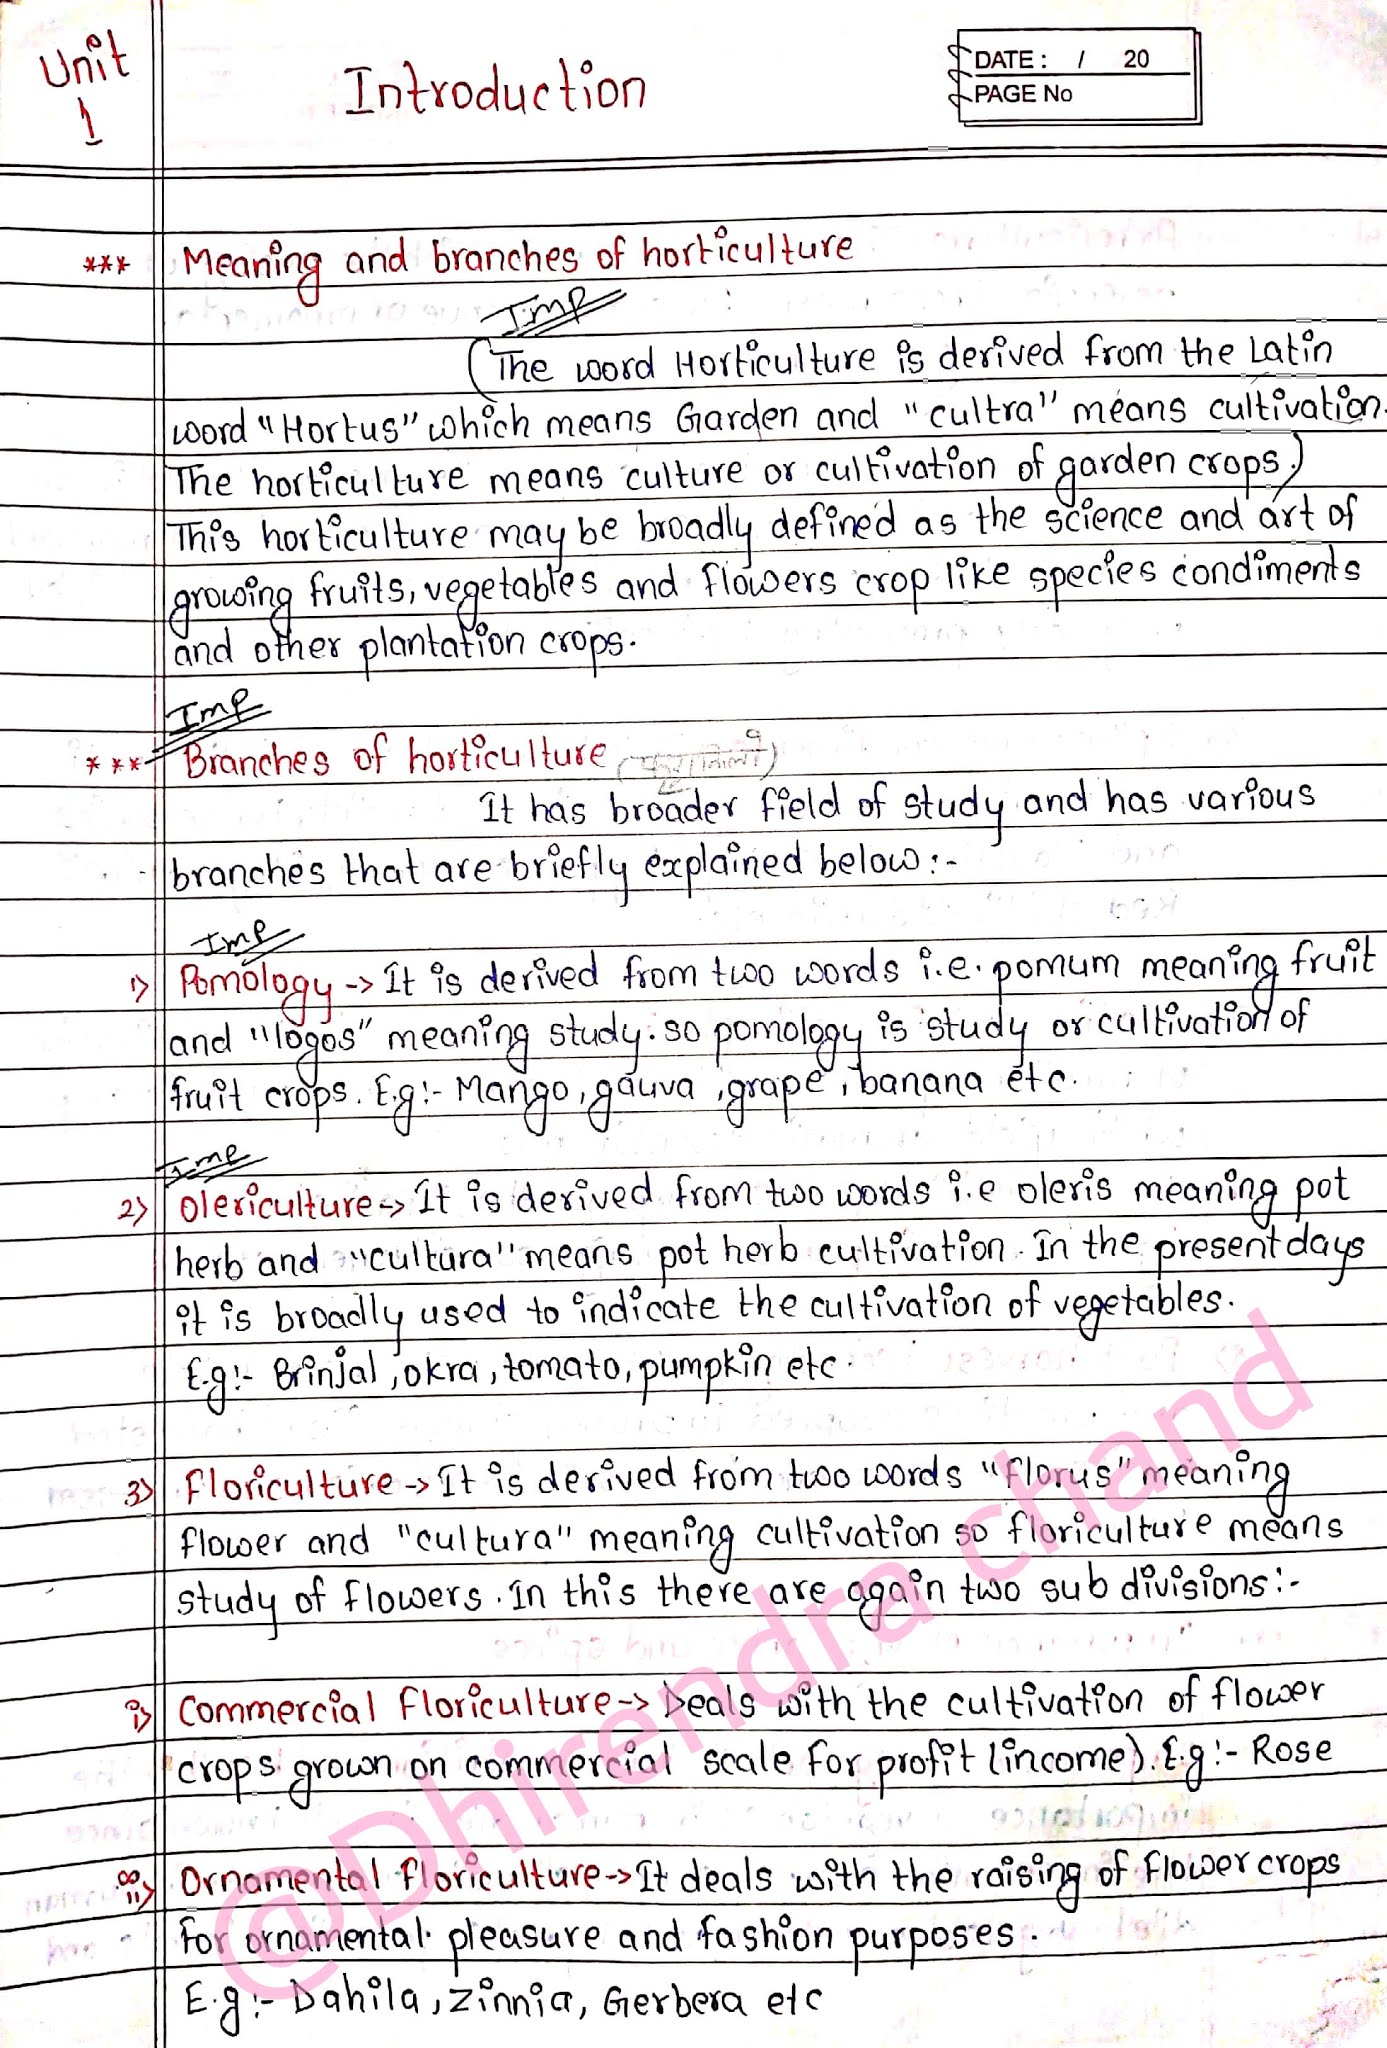 Unit
1
Introduction
DATE: / 20
PAGE No
*** Meaning and branches of horticulture
Imp
(The word Horticulture is derived from the Latin
word "Hortus" which means Garden and "cultra" means cultivation.
The horticulture means culture or cultivation of garden crops.)
This horticulture may be broadly defined as the science and art of
growing fruits, vegetables and flowers crop like species condiments
and other plantation crops.
Imp
*** Branches of horticulture
It has broader field of study and has various
branches that are briefly explained below:-
Imp
1) Pomology -> It is derived from two words i.e. pomum meaning fruit
and "logos" meaning study. so pomology is study or cultivation of
fruit crops. E.g:- Mango, gauva, grape, banana etc.
Imp
2) Olericulture -> It is derived from two words i.e oleris meaning pot
herb and "cultura" means pot herb cultivation. In the present days
it is broadly used to indicate the cultivation of vegetables.
E.g:- Brinjal, okra, tomato, pumpkin etc.
3) Floriculture -> It is derived from two words "florus" meaning
flower and "cultura" meaning cultivation so floriculture means
study of flowers. In this there are again two sub divisions:-
i) Commercial floriculture -> Deals with the cultivation of flower
crops grown on commercial scale for profit (income). E.g:- Rose
ii) Ornamental floriculture -> It deals with the raising of flower crops
for ornamental. pleasure and fashion purposes.
E.g:- Dahila, Zinnia, Gerbera etc
@Dhirendra chand